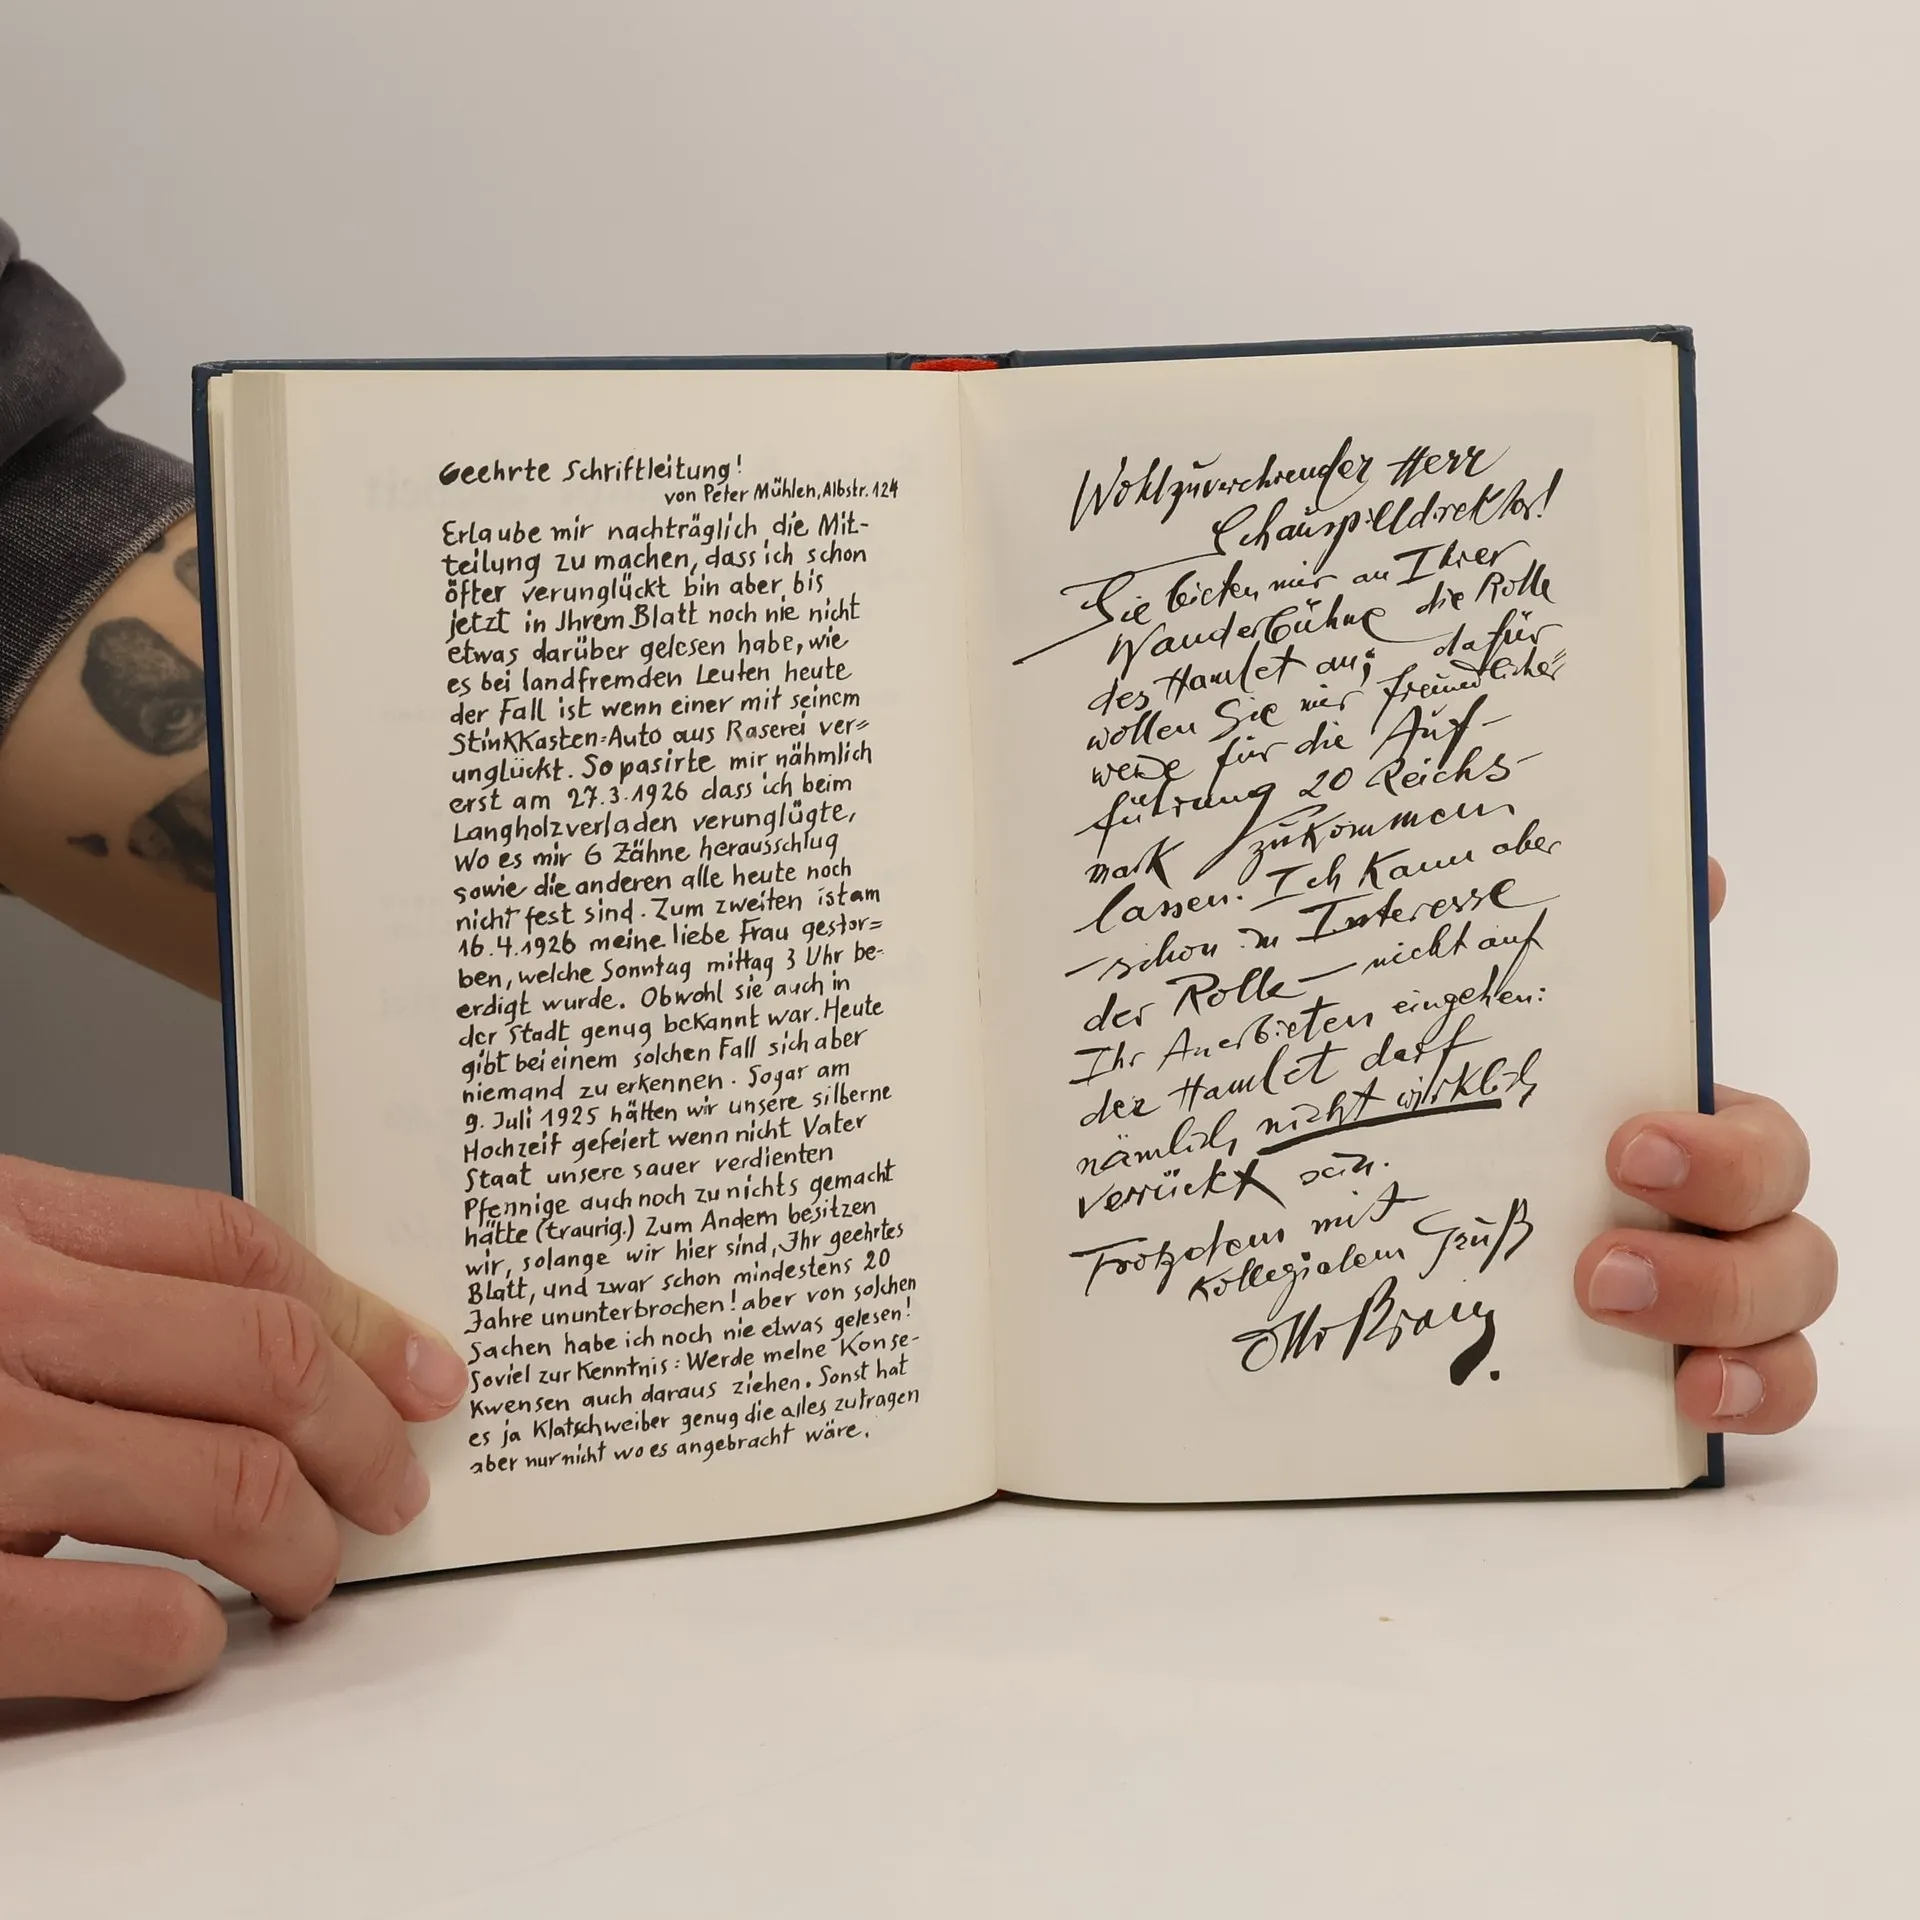 Geehrte Schriftleitung!
von Peter Mühlen, Albstr. 124
Erlaube mir nachträglich die Mit-
teilung zu machen, dass ich schon
öfter verunglückt bin aber bis
jetzt in Ihrem Blatt noch nie nicht
etwas darüber gelesen habe, wie
es bei landfremden Leuten heute
der Fall ist wenn einer mit seinem
StinkKasten=Auto aus Raserei ver=
unglückt. So pasirte mir nähmlich
erst am 27.3.1926 dass ich beim
Langholzverladen verunglügte,
Wo es mir 6 Zähne herausschlug
sowie die anderen alle heute noch
nicht fest sind. Zum zweiten ist am
16.4.1926 meine liebe Frau gestor=
ben, welche Sonntag mittag 3 Uhr be-
erdigt wurde. Obwohl sie auch in
der Stadt genug bekannt war. Heute
gibt bei einem solchen Fall sich aber
niemand zu erkennen. Sogar am
9. Juli 1925 hätten wir unsere silberne
Hochzeit gefeiert wenn nicht Vater
Staat unsere sauer verdienten
Pfennige auch noch zu nichts gemacht
hätte (traurig.) Zum Andern besitzen
wir, solange wir hier sind, Ihr geehrtes
Blatt, und zwar schon mindestens 20
Jahre ununterbrochen! aber von solchen
Sachen habe ich noch nie etwas gelesen!
Soviel zur Kenntnis: Werde meine Konse-
kwensen auch daraus ziehen. Sonst hat
es ja Klatschweiber genug die alles zutragen
aber nur nicht wo es angebracht wäre.
Wohlzuverehrender Herr
Schauspielldirektor!
Sie bieten mir an Ihrer
Wanderbühne die Rolle
des Hamlet an; dafür
wollen Sie mir freundlicher=
weise für die Auf-
führung 20 Reichs-
mark zukommen
lassen. Ich kann aber
– schon im Interesse
der Rolle – nicht auf
Ihr Anerbieten eingehen:
der Hamlet darf
nämlich nicht wirklich
verrückt sein.
Trotzdem mit
Kollegialem Gruß
Otto